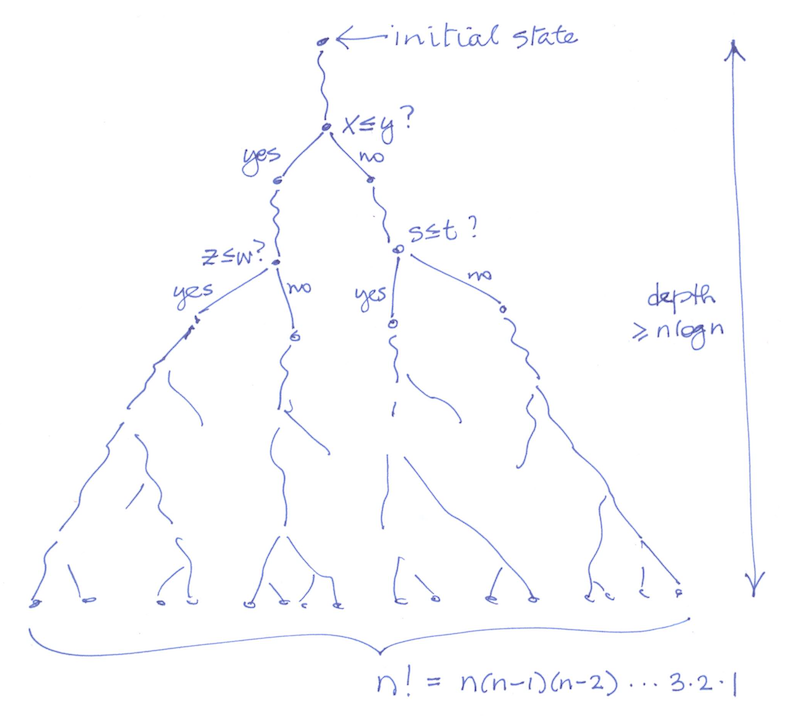 initial state
x≤y?
yes
no
s≤t?
z≤w?
yes
no
yes
no
depth
≥nlogn
n! = n(n-1)(n-2) ... 3·2·1